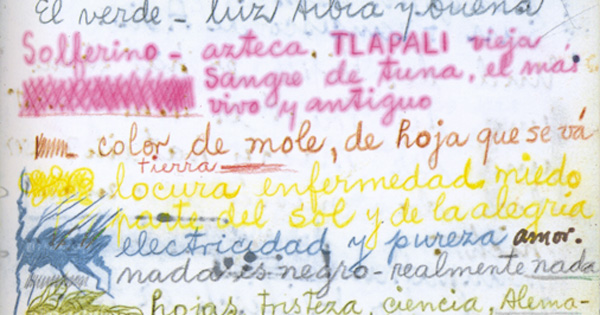 El verde - luz tibia y buena
Solferino - azteca. TLAPALI vieja
Sangre de tuna, el más
vivo y antiguo
color de mole, de hoja que se vá
tierra
locura enfermedad miedo
parte del sol y de la alegría
electricidad y pureza amor.
nada es negro - realmente nada
hojas, tristeza, ciencia, Alema-